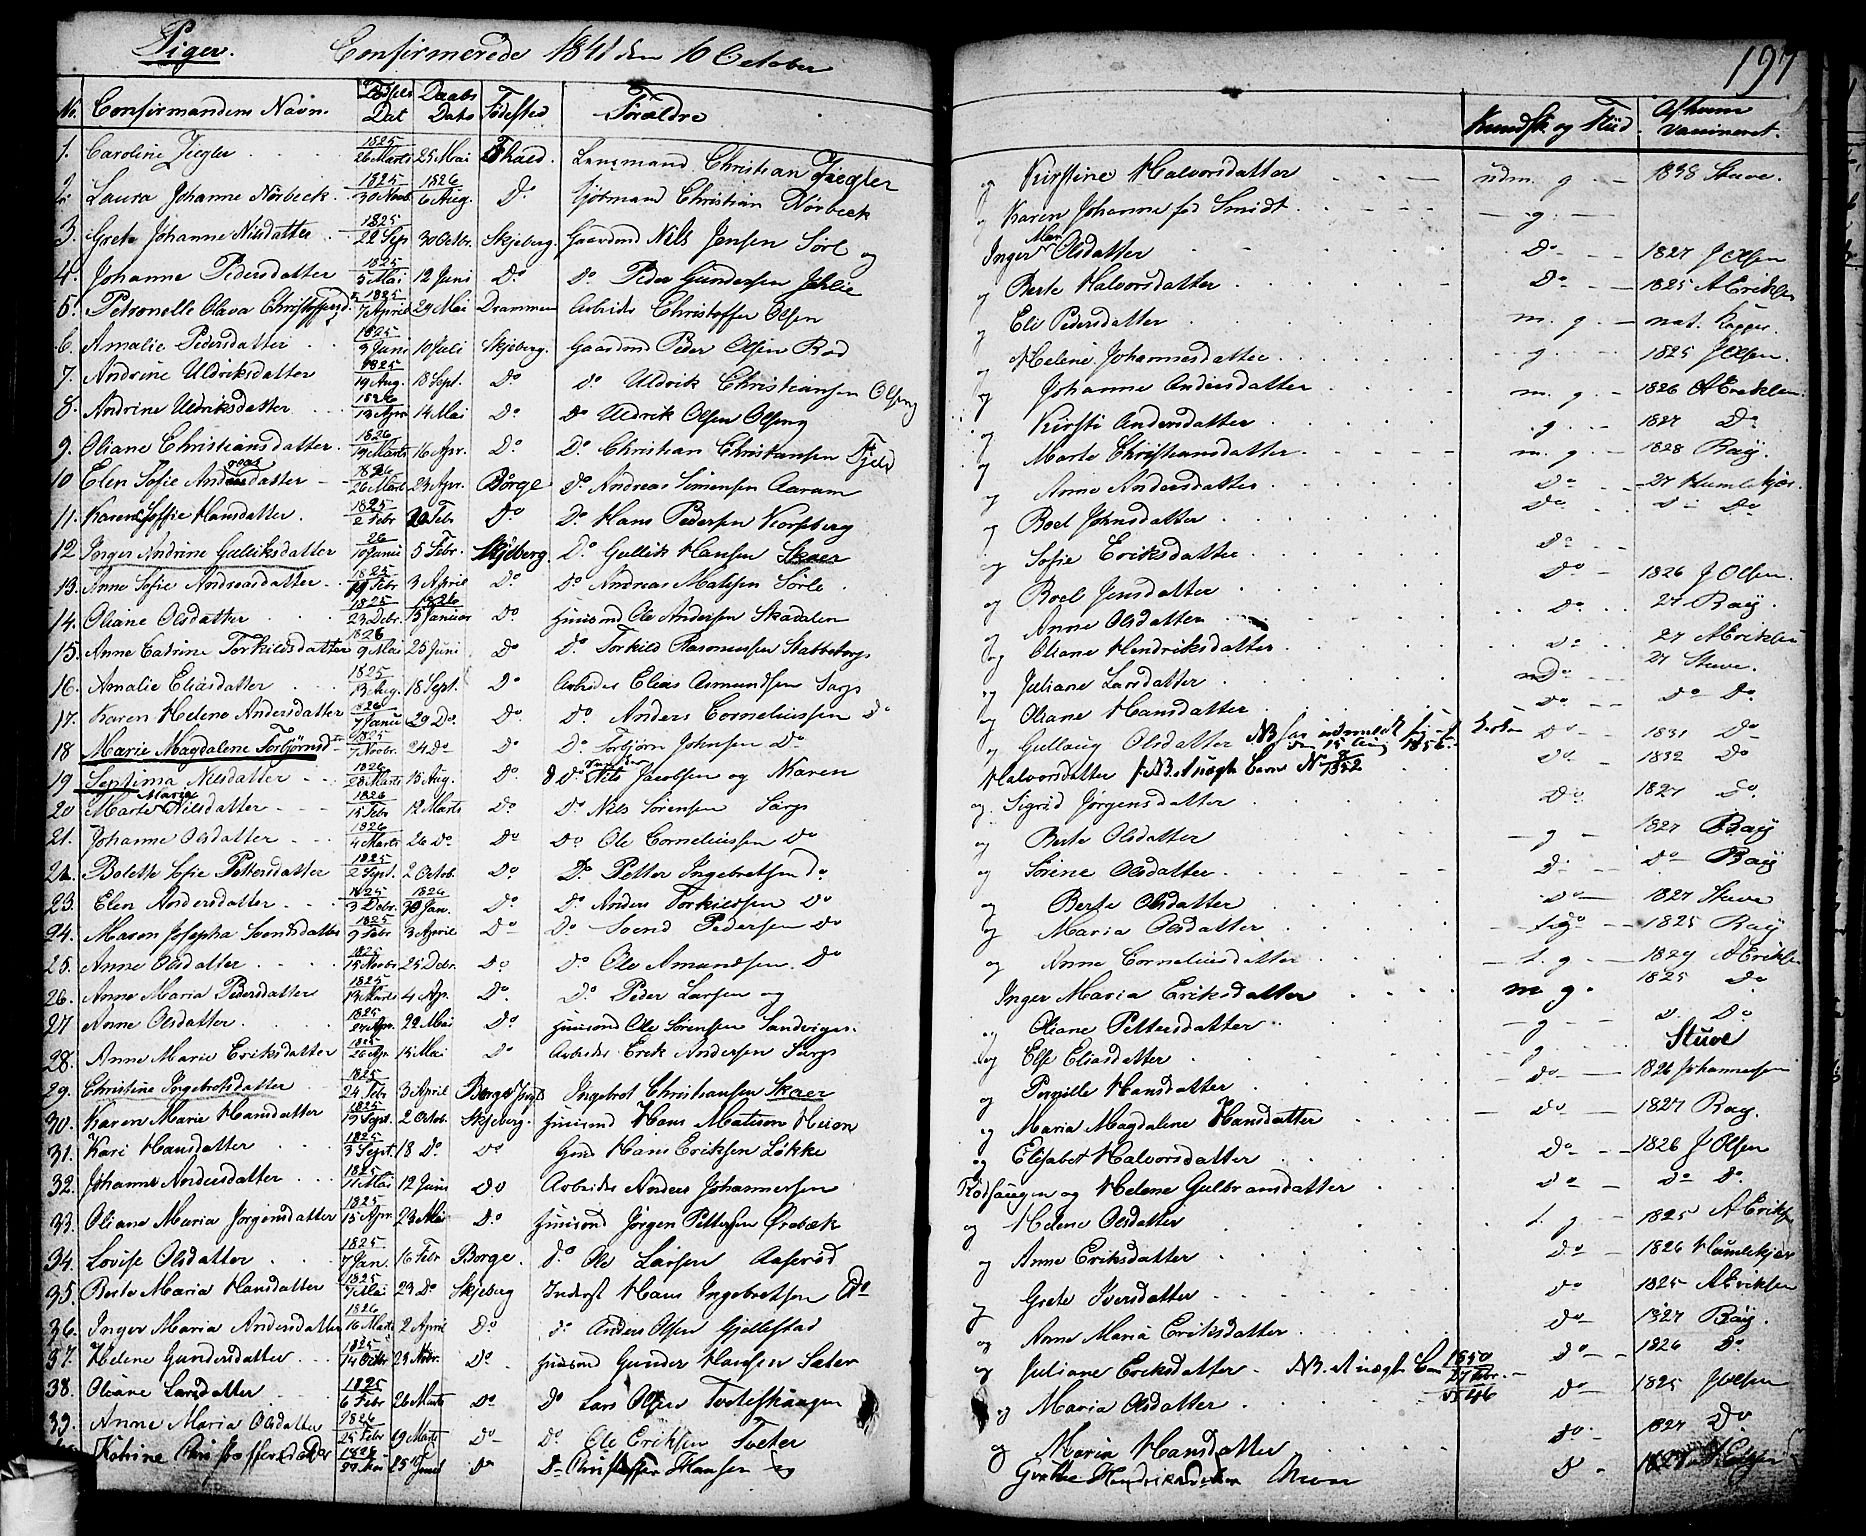 Piger. Confirmerede 1841 den 10 October 197
No. Confirmandens Navn. Fødsels Dat Daabs Dato Fødested Forældre Kundsk og Flid. Af hvem vaccineret.
1. Caroline Ziegler 1825 26 Marts 25 Mai Fhald. Lensmand Christian Ziegler og Kirstine Halvorsdatter udm. g. 1838 Stuve.
2. Laura Johanne Nörbeck. 1825 30 Novb. 1826 6 Aug. Do Christian Nörbeck og Karen Johanne fød Smidt g.
3. Grete Johanne Nilsdatter 1825 22 Sep 30 Octbr. Skjeberg. Gaardmd Nils Jensen Sörl og Inger Mar Olsdatter Do 1827 J Olsen
4. Johanne Pedersdatter 1825 5 Mai 12 Juni Do Do Peder Gundersen og Berte Halvorsdatter Do 1825 A Eriksen
5. Petronelle Olava Christoffersd. 1825 7 April 29 Mai Drammen Arbeider Christoffer Olsen og Eli Pedersdatter m. g. nat. Kopper.
6. Amalie Pedersdatter 1825 9 Juni 10 Juli Skjeberg. Gaardmd Peder Olsen Röd og Helene Johannesdatter g. 1825 J Olsen.
7. Andrine Uldriksdatter 1825 19 Aug. 18 Sept. Do do Uldrik Christiansen Olseng og Johanne Andersdatter m. g. 1826 A Eriksen.
8. Andrine Uldriksdatter 1826 13 Apr 14 Mai Do Do Uldrik Olsen Olseng og Kirsti Andersdatter g. 1827 Do
9. Oliane Christiansdatter 1826 19 Marts 16 Apr. Do Do Christian Christiansen Fjeld og Marte Christiansdatter m. g. 1828 Bay.
10 Elen Sofie Andreasdatter 1826 26 Marts 23 Apr. Börge do Andreas Simensen Aaram og Anne Andersdatter Do 27 Humlekjær.
11. Karen Soffie Hansdatter. 1825 2 Febr 20 Febr Do Do Hans Pedersen og Boel Johnsdatter Do Do
12 Inger Andrine Gulliksdatter 26 10 Janu 5 Febr. Skjeberg. Do Gullik Hansen Skaer og Sofie Eriksdatter Do
13. Anne Sofie Andreasdatter 1825 19 Febr 3 April Do Do Andreas Matssen Sörle og Boel Jensdatter Do 1826 J Olsen.
14. Oliane Olsdatter 1825 23 Debr. 1826 15 Januar Do Huusmd Ole Andersen Skadalen og Anne Olsdatter Do 27 Bay.
15. Anne Catrine Torkildsdatter 1826 9 Mai 25 Juni Do Do Torkild Rasmussen Stabbetorp og Oliane Hendriksdatter Do 27 A Eriksen
16. Amalie Eliasdatter 1825 13 Aug. 18 Sept. Do Arbeider Elias Asmundsen Sarps og Juliane Larsdatter Do 27 Stuve.
17. Karen Helene Andersdatter 1826 7 Janu 29 Do. Do Do Anders Corneliussen Do og Oliane Hansdatter Do Do Do
18 Marie Magdalene Torbjörnsd. 1825 7 Novbr. 24 Do Do Do Torbjörn Johnsen Do og Gullaug Olsdatter NB har udmeldt sig den 15 Aug 1856. Do 1831 Do
19 Septima Nilsdatter 1826 28 Marts 15 Aug. Do Do Nils Jacobsen og Karen Halvorsdatter NB Uægte Barn No 1852 Do 1832 Do
20 Marte Maria Nilsdatter 1826 15 Febr 12 Marts Do Do Nils Sörensen Sarps og Sigrid Jörgensdatter Do 1827 Do
21. Johanne Olsdatter 1826 4 Marts 26 Do Do Do Ole Corneliussen Do og Berte Olsdatter g 1827 Bay
22. Bolette Sofie Pettersdatter 1825 2 Sept. 2 Octob. Do Do Petter Ingebretsen Do og Sörine Olsdatter Do Do Bay
23. Elen Andersdatter 1825 3 Debr. 1826 30 Jan. Do Do Anders Torkildsen Do og Berte Olsdatter Do 1827 Stuve
24. Maren Josepha Svendsdatter 1825 9 Febr 3 April Do Do Svend Pedersen Do og Maria Olsdatter t. g. 1825 Bay
25. Anne Olsdatter 1825 15 Novbr 25 Debr. Do Do Ole Amundsen Do og Anne Corneliusdatter t. g. 1827 A Eriksen
26. Anne Maria Pedersdatter 1825 13 Marts 4 Ap. Do Do Peder Larsen og Inger Maria Eriksdatter m g. 1825 Do
27 Anne Olsdatter. 1825 24 Apr. 22 Mai Do Huusmd Ole Sörensen Sandvigen og Oliane Pettersdatter g Do Do
28. Anne Marie Eriksdatter 1825 26 Apr 15 Mai Do Arbeider Erik Andersen Sarps og Else Eliasdatter g. Stuve
29. Christine Ingebretsdatter 1825 24 Febr 3 April Borge Ingebret Christiansen Skaer og Pernille Hansdatter Do 1826 Johannesen
30. Karen Marie Hansdatter 1825 19 Sept. 2 Octob. Skjeberg. Huusmd Hans Matisen Heien og Maria Magdalene Hansdatter Do 1827 Bay.
31. Kari Hansdatter 1825 3 Sept. 18 Do Do Gmd Hans Eriksen Løkke og Elisabet Halvorsdatter Do 1826 J Olsen
32. Johanne Andersdatter 1825 11 Mai 12 Juni Do Arbeider Anders Johannessen Rödhaugen og Helene Gulbrandsdatter Do Do Do
33. Oliane Maria Jörgensdatter 1825 15 Apr. 23 Mai Do Huusmd Jörgen Pettersen Örebæk og Helene Olsdatter t. g. 1825 A Eriksen
34. Lovise Olsdatter 1825 7 Jan. 16 Febr Borge. Do Ole Larsen Aaseröd og Anne Eriksdatter Do 1826 Humlekjær
35. Berte Maria Hansdatter 1825 7 Mai 23 Do Skjeberg Inderst Hans Ingebretsen Do og Grete Iversdatter Do 1825 A Eriksen
36. Inger Maria Andersdatter 1826 16 Marts 2 April Do Do Anders Olsen Gjellestad og Anne Maria Eriksdatter Do 1827 Bay.
37. Helene Gundersdatter 1825 14 Octbr 23 Novbr. Do Huusmd Gunder Hansen Sæter og Juliane Eriksdatter NB. Uægte Ba 1850 27 Febr. Do 1826 Do
38. Oliane Larsdatter 1825 6 Febr 26 Marts Do Do Lars Olsen og Maria Olsdatter Do 1825 J Olsen
39. Anne Maria Olsdatter 1826 25 Febr 19 Marts Do Do Ole Eriksen Tveter og Maria Hansdatter Do 1827 Do
Katrine Christoffersdatter 1826 Mai 25 Juni Do Do Christoffer Hansen og Hendriksdatter Do 1827